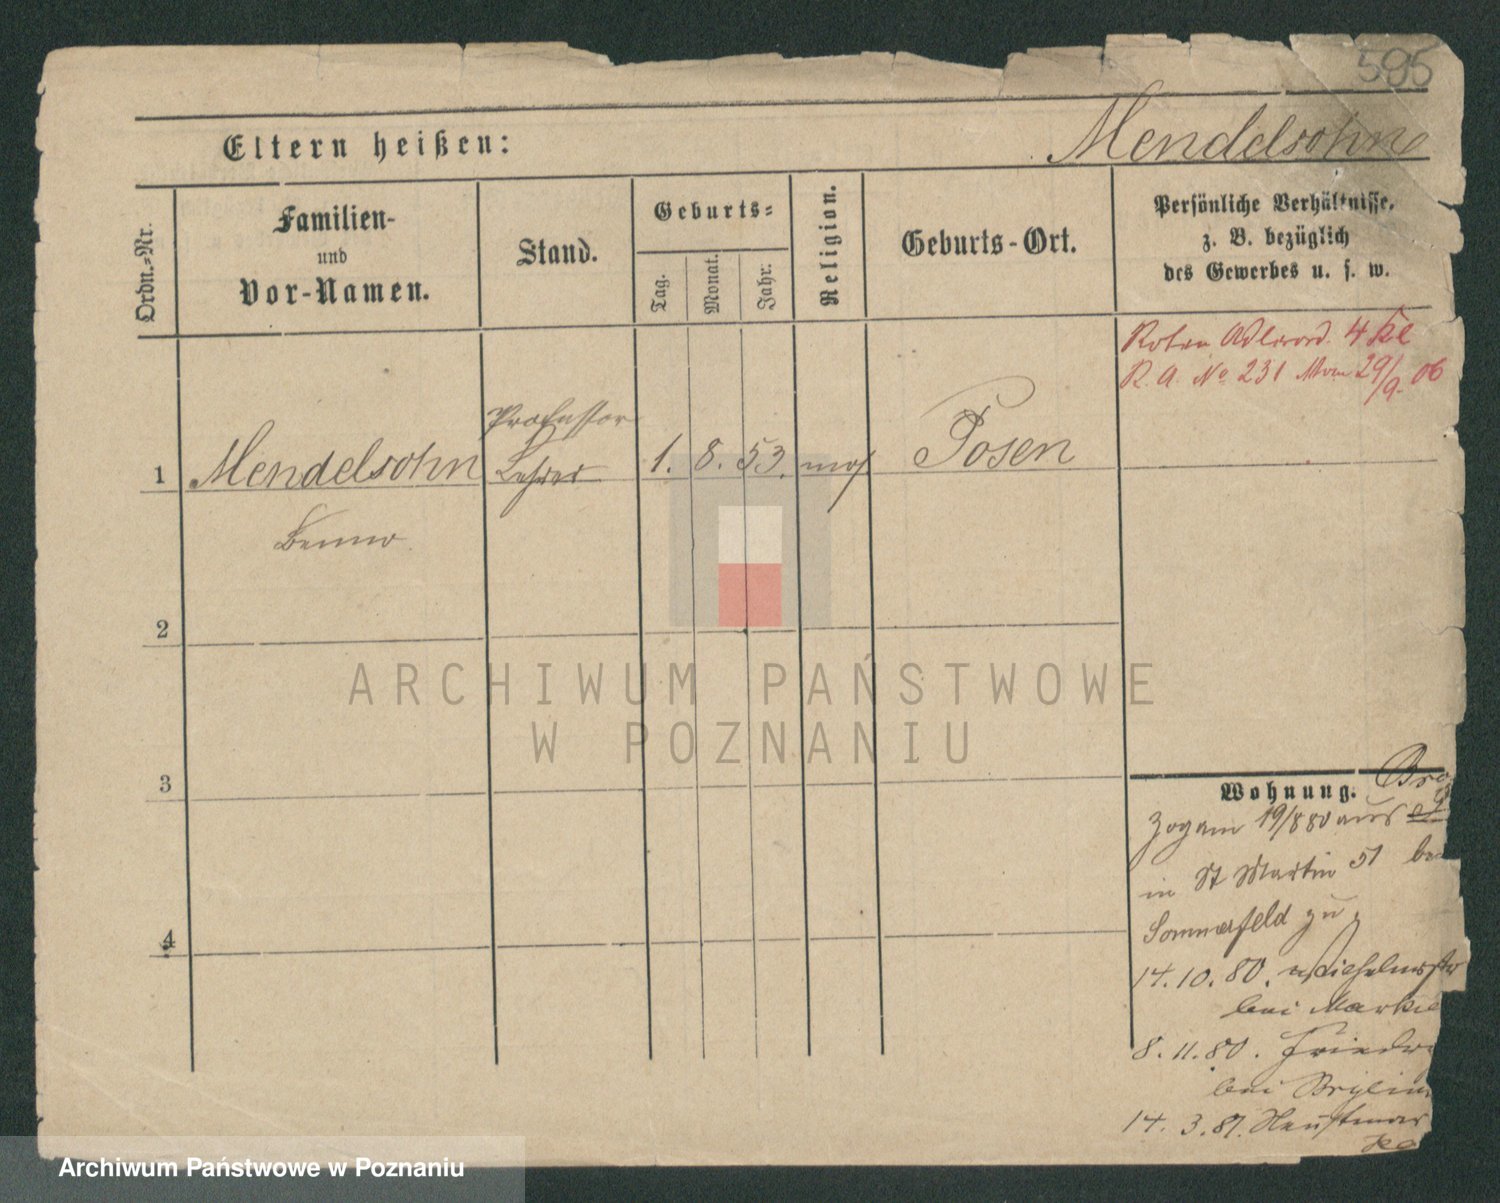 595
Eltern heißen:
Mendelsohn
Ordn.-Nr.
Familien-
und
Vor-Namen.
Stand.
Geburts-
Tag.
Monat.
Jahr.
Religion.
Geburts-Ort.
Persönliche Verhältnisse.
z. B. bezüglich
des Gewerbes u. s. w.
Roten Adlerord. 4 Kl
R. A. No 231 vom 29/9. 06
Professor
1 Mendelsohn Lehrer 1. 8. 53. mos Posen
Benno
2
3
4
Wohnung.
Zog am 19/8 80 aus
in St Martin 51
Sommerfeld zu
14. 10. 80. Wilhelmstr
bei
8. 11. 80.
bei
14. 3. 81.
ARCHIWUM PAŃSTWOWE
W POZNANIU
Archiwum Państwowe w Poznaniu